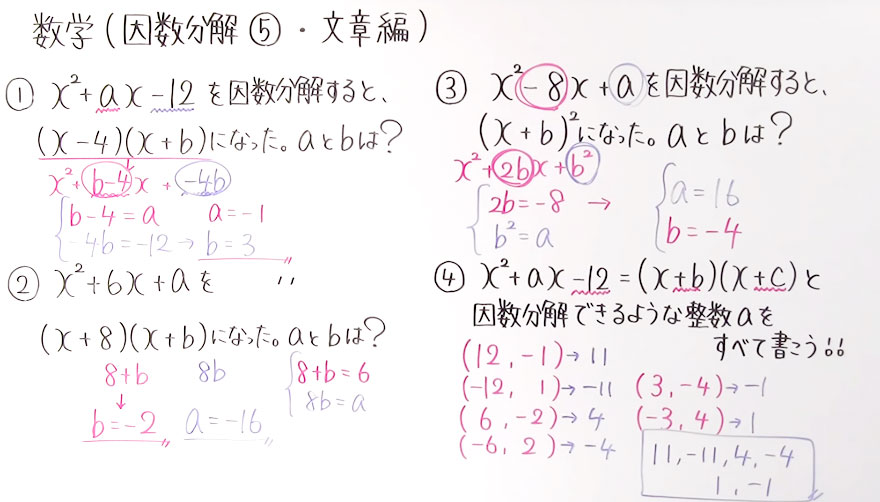 数学(因数分解⑤・文章編)
① x²+ax-12を因数分解すると、
(x-4)(x+b)になった。aとbは?
x²+(b-4)x+(-4b)
{b-4=a a=-1
-4b=-12→b=3
② x²+6x+aを 〃
(x+8)(x+b)になった。aとbは?
8+b 8b {8+b=6
↓ 8b=a
b=-2 a=-16
③ x²-8x+aを因数分解すると、
(x+b)²になった。aとbは?
x²+2bx+b²
{2b=-8 → {a=16
b²=a b=-4
④ x²+ax-12=(x+b)(x+c)と
因数分解できるような整数aを
すべて書こう!!
(12,-1)→11
(-12, 1)→-11 (3,-4)→-1
(6,-2)→4 (-3,4)→1
(-6,2)→-4
11,-11,4,-4
1,-1